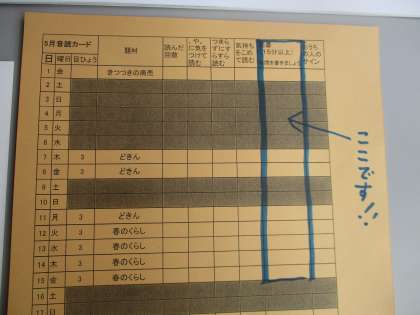 5月音読カード
日 曜日 目ひょう 題材 読んだ回数 、や。に気をつけて読む つまらずにすらすら読む 気持ちをこめて読む (15分以上) おうちの人のサイン
1 金 きつつきの商売
2 土
3 日
4 月
5 火
6 水
7 木 3 どきん
8 金 3 どきん
9 土
10 日
11 月 3 どきん
12 火 3 春のくらし
13 水 3 春のくらし
14 木 3 春のくらし
15 金 3 春のくらし
16 土
17 日
ここです!!